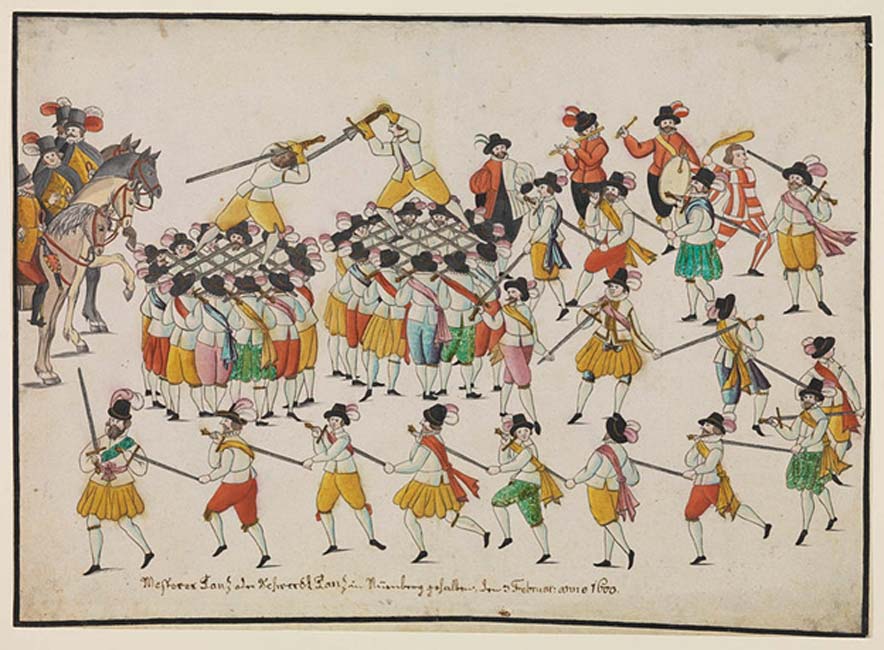 Messerer Tantz oder Schwerdt Tantz in Nürenberg gehalten, den 3 Februar: anno 1600.